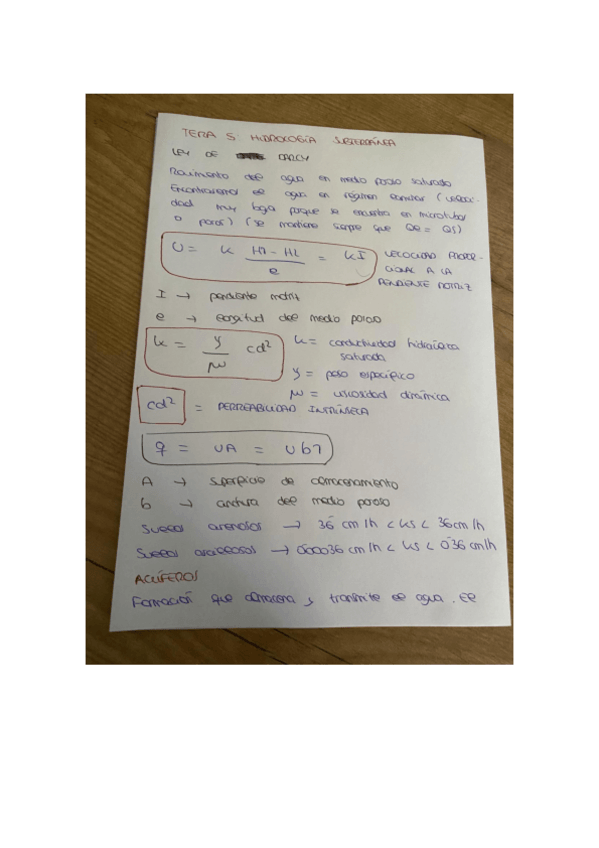 TEMA 5 HIDROLOGÍA SUBTERRÁNEA
LEY DE DARCY
Movimiento del agua en medio poroso saturado
Encontraremos el agua en régimen laminar (veloci-
dad muy baja porque se encuentra en microtubos
o poros) (se mantiene siempre que Qe = Qs)
U = K (H1 - H2)/e = KI VELOCIDAD PROPOR-
CIONAL A LA
PENDIENTE MOTRIZ
I → pendiente motriz
e → longitud del medio poroso
K = γ/μ cd² K = conductividad hidráulica
saturada
γ = peso específico
μ = viscosidad dinámica
cd² = PERMEABILIDAD INTRÍNSECA
q = UA = Ub1
A → superficie de almacenamiento
b → anchura del medio poroso
Suelos arenosos → 3'6 cm/h < Ks < 36 cm/h
Suelos arcillosos → 0'00036 cm/h < Ks < 0'36 cm/h
ACUÍFEROS
Formación que almacena y transmite el agua. El